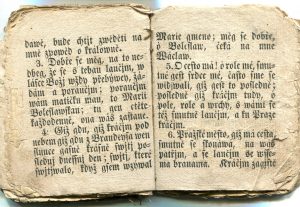 dawě, bude chtjt zwěděti na
mně zpowěd o králowně.
3. Dobře se měg, na to ne-
dbeg, že se s tebau laučjm, w
lásce Božj wždy přebýwey, žá-
dám a poraučjm; poraučjm
wám matičku mau, to Marii
Boleslawskau; tu gen ctěte
každodenně, ona wás zastane.
4. Giž gdu, giž kráčjm pod
nebem giž gdu z Brandeysa wen
slunce gasně krásně swjtj po-
sledný dnessnj den; swjtj, které
swjtjwalo, když gsem wzýwal
Marie gmeno; měg se dobře,
ó Boleslaw, čeká na mne
Wáclaw.
5. O cesto má! o role mé, smut-
né gest srdce mé, často sme se
wjdawali, giž gest to posledně;
posledně giž kráčjm tudy, o
pole, role a wrchy, s wámi se
též smutně laučjm, a ku Praze
kráčjm.
6. Pražské město, giž má cesta,
smutně se skonáwa, na wás
patřjm, a se laučjm se wsse-
ma branama. Kráčjm zagisté